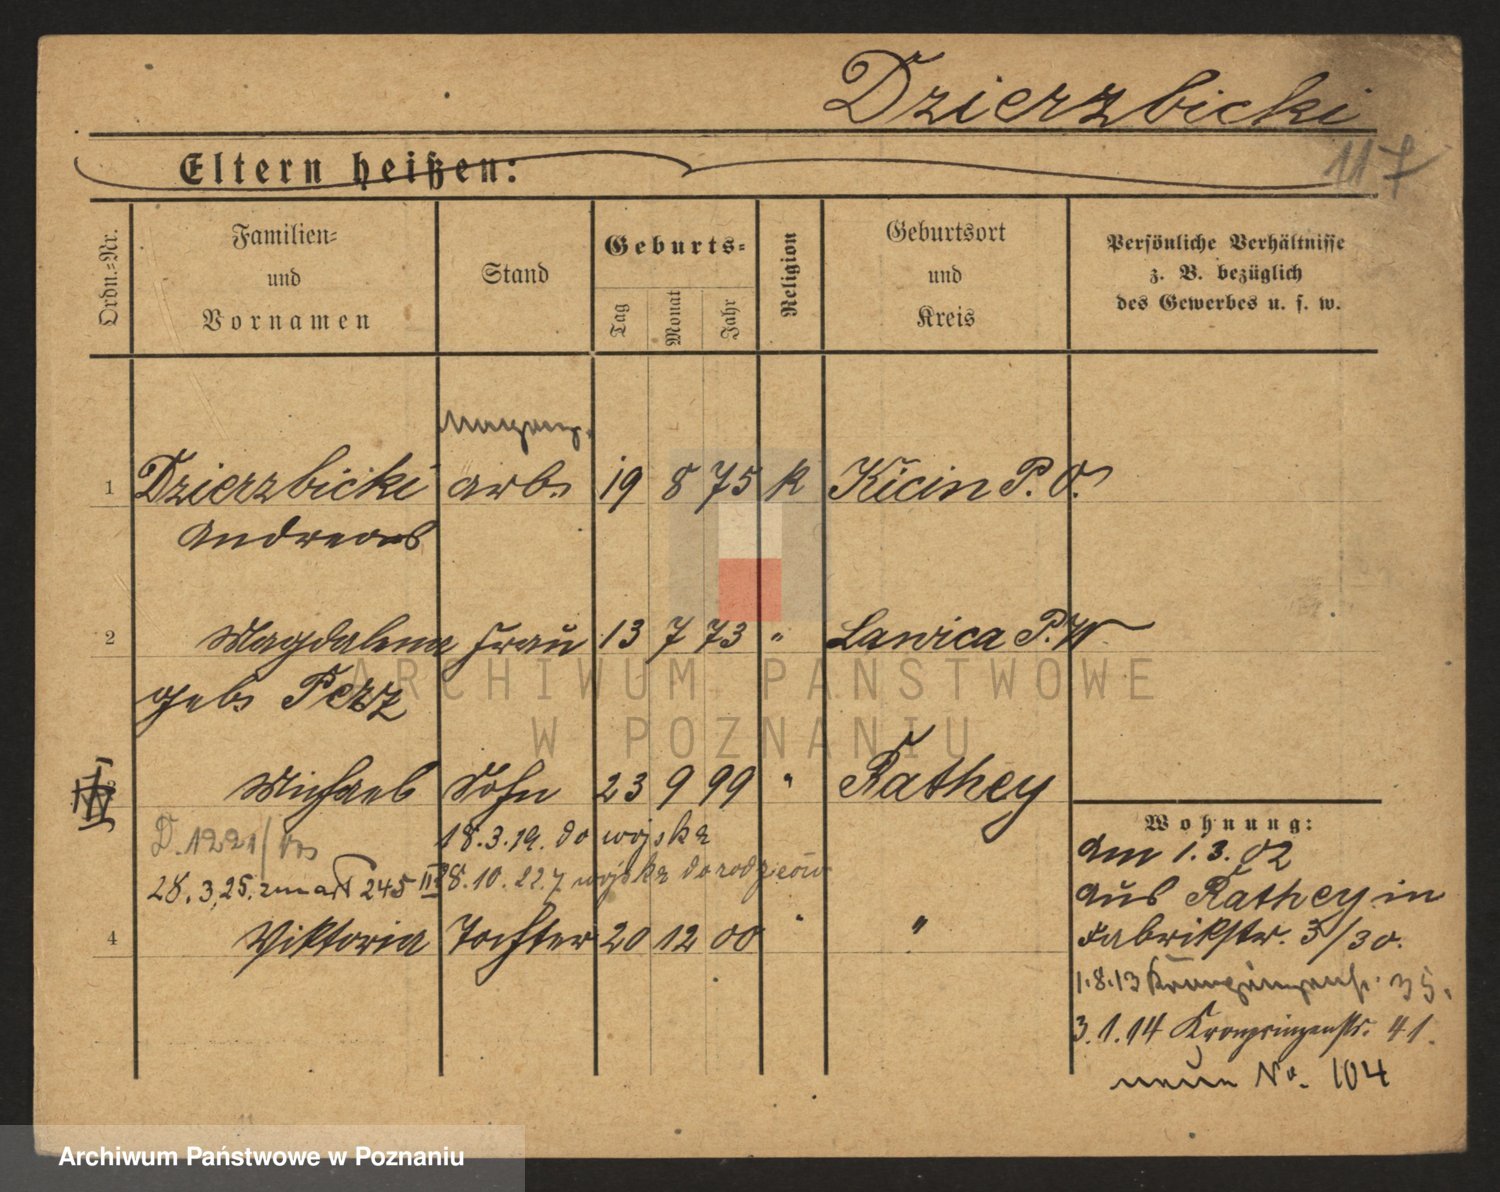 Dzierzbicki
117
Eltern heißen:
Ordn.-Nr.
Familien-
und
Vornamen
Stand
Geburts-
Tag
Monat
Jahr
Religion
Geburtsort
und
Kreis
Persönliche Verhältnisse
z. B. bezüglich
des Gewerbes u. s. w.
1 Dzierzbicki arb. 19 8 75 k Kicin P. O.
Andreas
2 Magdalena Frau 13 7 73 " Lawica P. W
geb. Perz
3 Michael Sohn 23 9 99 " Rathey
D. 1221/
18.3.19. do wojska
28.3.25. zmarł 245 III
28.10.22. z wojska do rodziców
4 Viktoria Tochter 20 12 00 " "
Wohnung:
Am 1.3.02
aus Rathey in
Fabrikstr. 3/30.
1.8.13 Kronprinzenstr. 35.
3.1.14 Kronprinzenstr. 41.
neue No. 104
ARCHIWUM PAŃSTWOWE
W POZNANIU
Archiwum Państwowe w Poznaniu